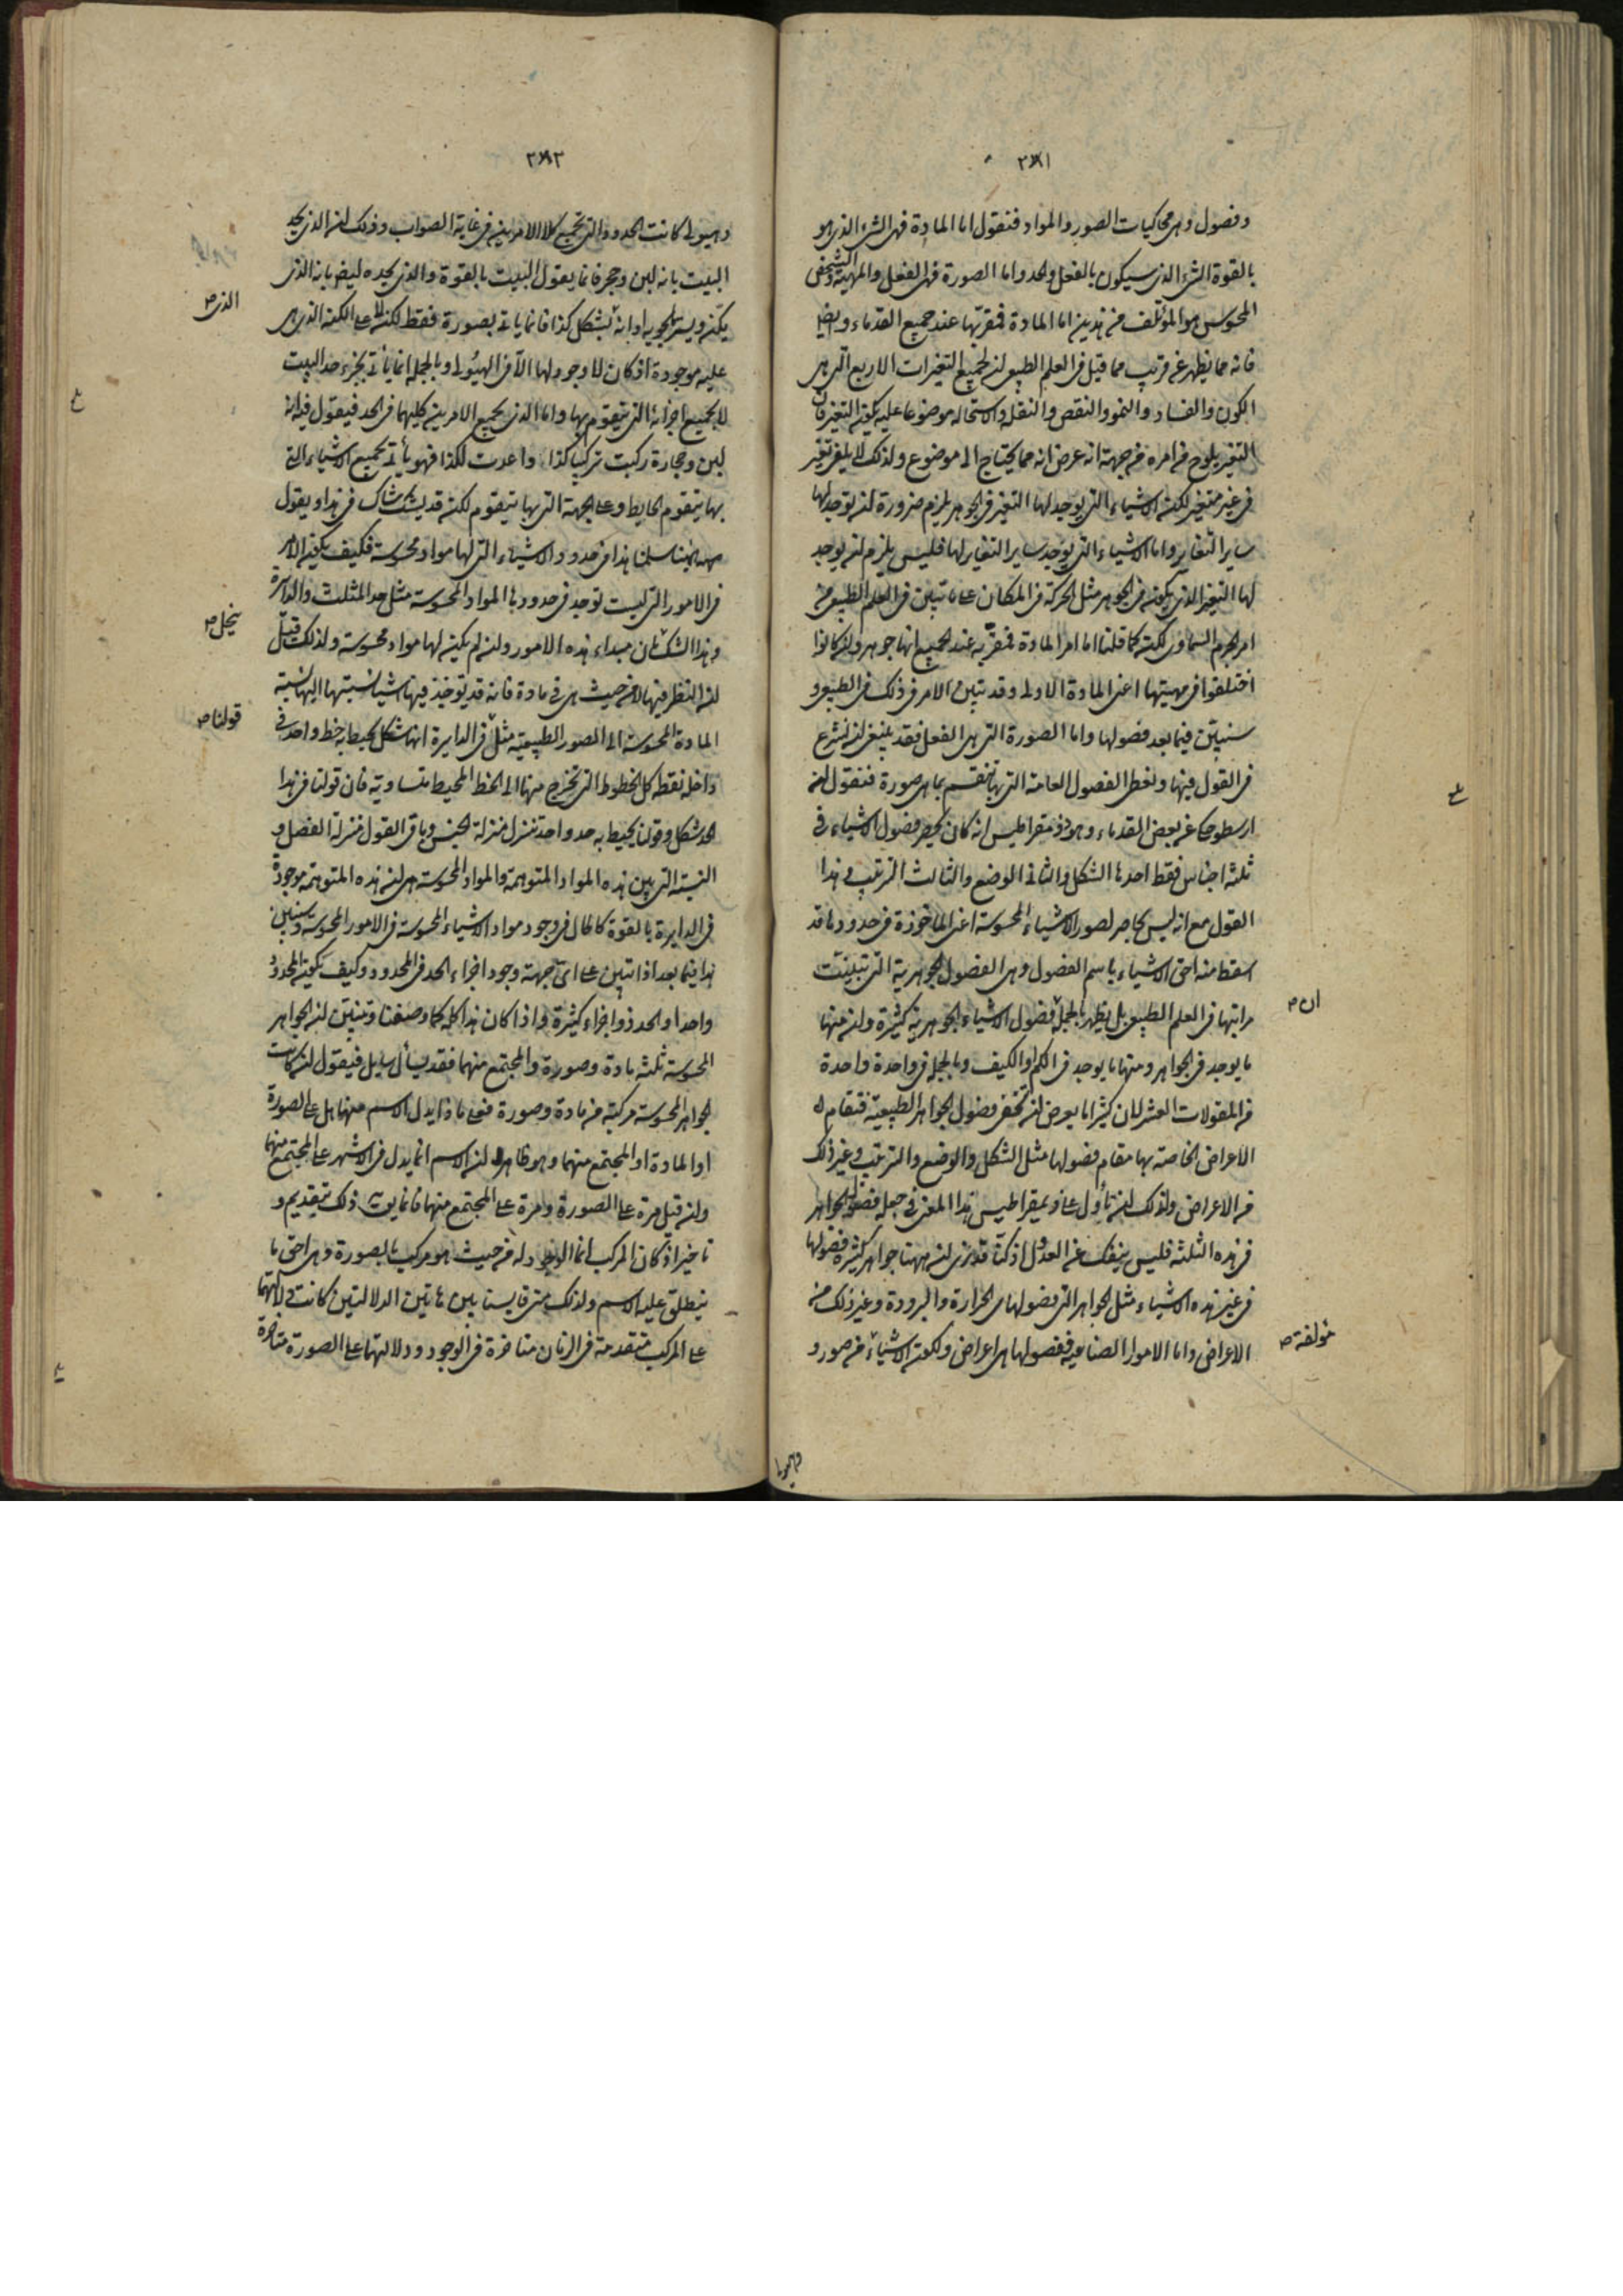 ٣٨١
وفصول وهى محاكيات الصور والمواد فنقول اما المادة فهى الشىء الذى هو
بالقوة الشىء الذى سيكون بالفعل والحد واما الصورة فهى الفعل والمهية والشخص
المحسوس هو المؤتلف من هذين اما المادة فمقر بها عند جميع القدماء وايضا
فانه مما يظهر عن قريب مما قيل فى العلم الطبيعى ان لجميع التغيرات الاربع التى هى
الكون والفساد والنمو والنقص والنقلة والاستحالة موضوعا عليه يكون التغير فان
التغير يلوح من امره من جهة انه عرض انه مما يحتاج الى موضوع ولذلك لا يلفى تغير
فى غير متغير لكن الاشياء التى يوجد لها التغير فى الجوهر يلزم ضرورة ان يوجد لها
ساير التغاير واما الاشياء التى يوجد ساير التغاير لها فليس يلزم ان يوجد
لها التغير الذى يكون فى الجوهر مثل الحركة فى المكان على ما تبين فى العلم الطبيعى من
امر الجرم السماوى لكن كما قلنا اما امر المادة فمقر به عند الجميع انها جوهر وان كانوا
اختلفوا فى مهيتها اعنى المادة الاولى وقد تبين الامر فى ذلك فى الطبيعى و
سنبين فيما بعد فصولها واما الصورة التى هى الفعل فقد ينبغى ان نشرع
فى القول فيها ونعطى الفصول العامة التى بها تنقسم بما هى صورة فنقول ان
ارسطو حكى عن بعض القدماء وهو ذومقراطيس انه كان يحصر فصول الاشياء فى
ثلثة اجناس فقط احدها الشكل والثانى الوضع والثالث الترتيب وهذا
القول مع انه ليس بحاصر لصور الاشياء المحسوسة اعنى الماخوذة فى حدودها قد
اسقط منه احق الاشياء باسم الفصول وهى الفصول الجوهرية التى تبينت
مراتبها فى العلم الطبيعى بل يظهر بالجملة فصول الاشياء الجوهرية كثيرة وان منها
ان ص
ما يوجد فى الجواهر ومنها ما يوجد فى الكم او الكيف وبالجملة فى واحدة واحدة
من المقولات العشر لان كثيرا ما يعرض ان تخفى فصول الجواهر الطبيعية فتقام
الاعراض الخاصة بها مقام فصولها مثل الشكل والوضع والترتيب وغير ذلك
من الاعراض ولذلك ان تأول على ذيمقراطيس هذا المعنى فى جعله فصول الجواهر
فى هذه الثلثة فليس ينفك عن العدول اذ كنا قد نرى ان ههنا جواهر كثيرة فصولها
فى غير هذه الاشياء مثل الجواهر التى فصولها هى الحرارة والبرودة وغير ذلك من
الاعراض واما الامور الصناعية ففصولها هى اعراض ولكون الاشياء من صور و
مؤلفة ص
٣٨٢
وهيولى كانت الحدود التى تجمع كلا الامرين فى غاية الصواب وذلك ان الذى يحد
البيت بانه لبن وحجر فانما يقول البيت بالقوة والذى يحده ايضا بانه الذى
الذى ص
يكن ويستر ما يحويه او انه بشكل كذا فانما ياتى بصورة فقط لكن لا على الكون الذى هى
عليه موجودة اذ كان لا وجود لها الا فى الهيولى وبالجملة انما يأتى بجزء حد البيت
لا بجميع اجزائه التى يتقوم بها واما الذى يجمع الامرين كليهما فى الحد فيقول فيه انه
لبن وحجارة ركبت تركيب كذا واعدت لكذا فهو يأتى بجميع الاشياء التى
بها يتقوم الحايط وعلى الجهة التى بها يتقوم لكن قد يشك شاك فى هذا ويقول
هبه انا سلمنا هذا فى حدود الاشياء التى لها مواد محسوسة فكيف يكون الامر
فى الامور التى ليست توجد فى حدودها المواد المحسوسة مثل حد المثلث والدايرة
وهذا الشك كان مبداء هذه الامور وان لم يكن لها مواد محسوسة ولذلك قيل
ينحل ص
ان النظر فيها لا من حيث هى فى مادة فانه قد يؤخذ فيها شيئا نسبتها اليها نسبة
المادة المحسوسة الى الصور الطبيعية مثل فى الدايرة انها شكل يحيط به خط واحد فى
قولنا ص
داخله نقطة كل الخطوط التى تخرج منها الى الخط المحيط متساوية فان قولنا فى هذا
الحد شكل وقولنا يحيط به حد واحد تتنزل منزلة الجنس وباقى القول منزلة الفصل و
النسبة التى بين هذه المواد المتوهمة والمواد المحسوسة هى ان هذه المتوهمة موجودة
فى الدايرة بالقوة كالحال فى وجود مواد الاشياء المحسوسة فى الامور المحسوسة وسنبين
هذا فيما بعد اذا تبين على اى جهة وجود اجزاء الحد فى المحدود وكيف يكون المحدود
واحدا والحد ذو اجزاء كثيرة واذا كان هذا كله كما وصفنا وتبين ان الجواهر
المحسوسة ثلثة مادة وصورة والمجتمع منهما فقد يسأل سايل فيقول ان كانت
الجواهر المحسوسة مركبة من مادة وصورة فعلى ماذا يدل الاسم منها هل على الصورة
او المادة او المجتمع منهما وهو ظاهر ان الاسم انما يدل فى الاشهر على المجتمع منهما
وان قيل مرة على الصورة ومرة على المجتمع منهما فانما يوب ذلك بتقديم و
تاخير اذ كان المركب انما الوجود له من حيث هو مركب بالصورة وهى احق ما
ينطلق عليه الاسم ولذلك متى قايسنا بين هاتين الدلالتين كانت دلالتهما
على المركب متقدمة فى الزمان متاخرة فى الوجود ودلالتهما على الصورة متاخرة